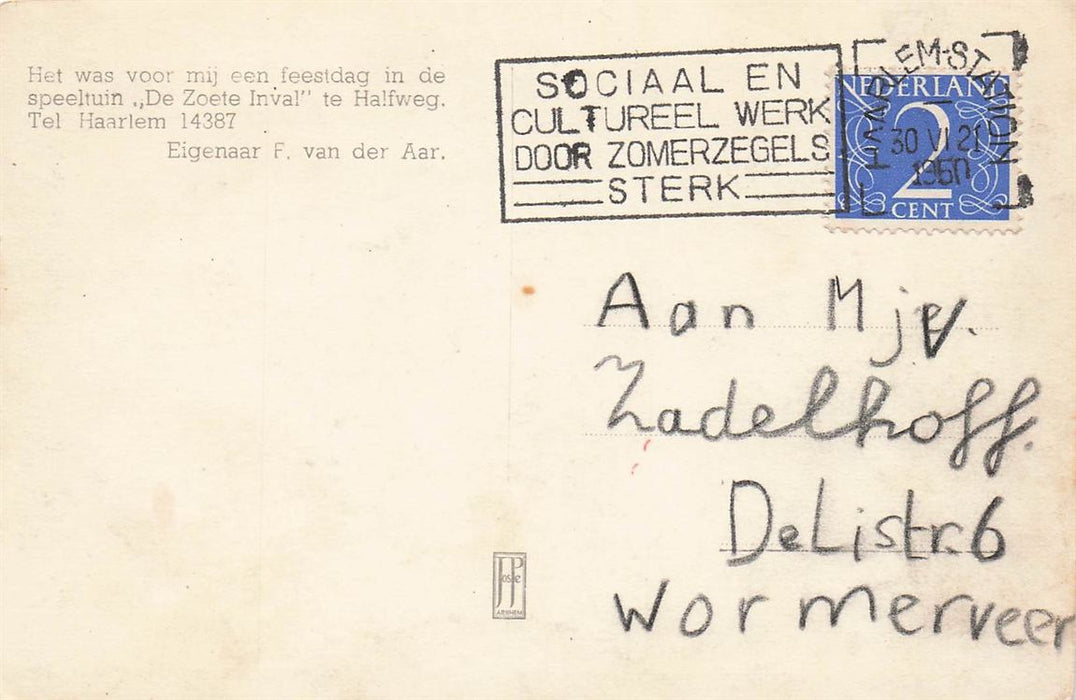 Het was voor mij een feestdag in de
speeltuin „De Zoete Inval" te Halfweg.
Tel Haarlem 14387
Eigenaar F. van der Aar.
SOCIAAL EN
CULTUREEL WERK
DOOR ZOMERZEGELS
STERK
HAARLEM-STATION
30 VI 21
1960
NEDERLAND
2
CENT
Aan Mje V.
Zadelhoff.
DeListr. 6
Wormerveer
JP
JosPe
ARNHEM